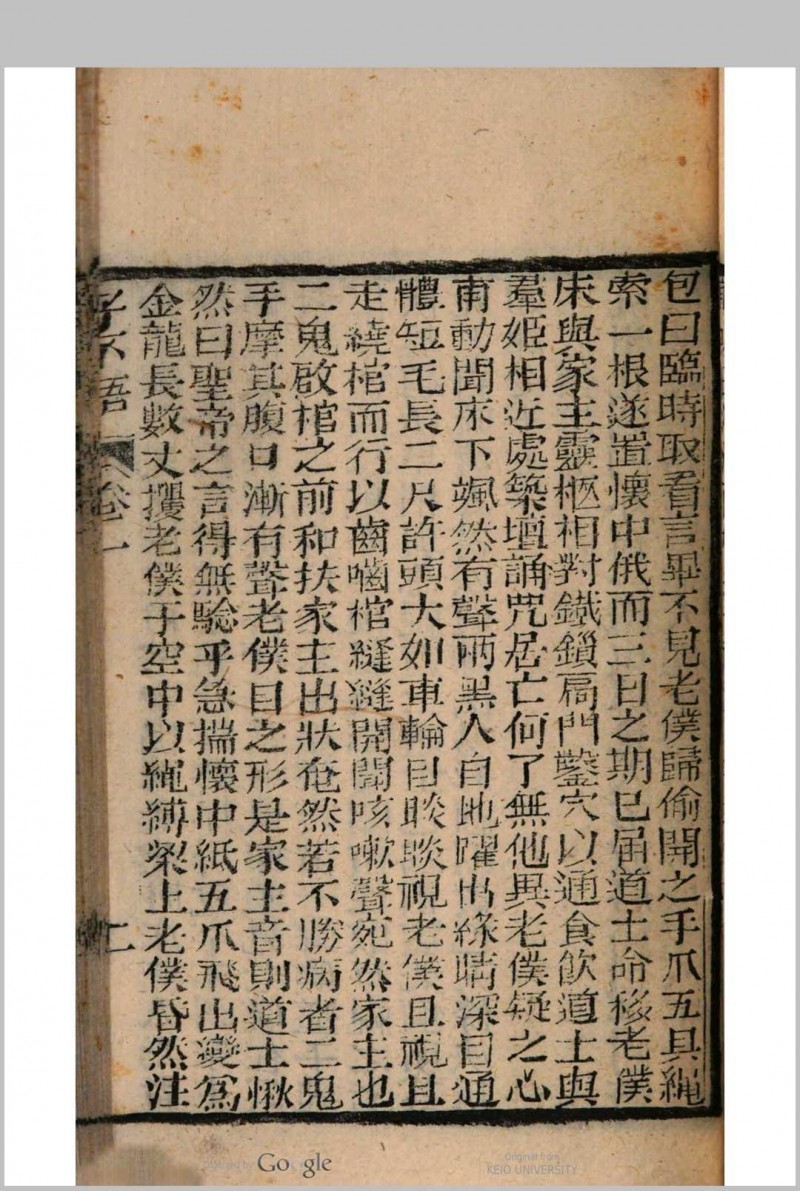 包曰臨時取看言畢不見老僕歸偷開之手爪五具繩
索一根遂置懷中俄而三日之期已屆道士命移老僕
床與家主靈柩相對鐵鎖扃門鑿穴以通食飲道士與
羣姬相近處築壇誦咒居亡何了無他異老僕疑之心
甫動聞床下颯然有聲兩黑人自地躍出綠睛深目通
體短毛長二尺許頭大如車輪目睒睒視老僕且視且
走繞棺而行以齒嚙棺縫縫開聞咳嗽聲宛然家主也
二鬼啟棺之前和扶家主出狀奄然若不勝病者二鬼
手摩其腹口漸有聲老僕目之形是家主音則道士愀
然曰聖帝之言得無驗乎急揣懷中紙五爪飛出變為
金龍長數丈攫老僕于空中以繩縛梁上老僕昏然注
子不語 卷一 二
Google
Original from
KEIO UNIVERSITY